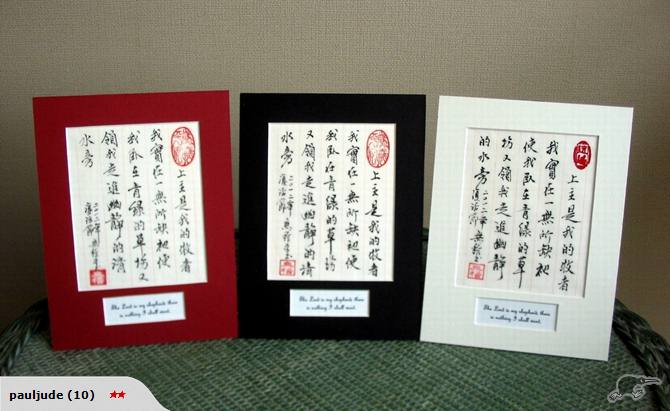 上主是我的牧者
我實在一無所缺祂使
我臥在青綠的草場又
領我走進幽靜的清
水旁
二〇一二年
復活節
The Lord is my shepherd there
is nothing I shall want.
上主是我的牧者
我實在一無所缺祂使
我臥在青綠的草場
又領我走進幽靜的清
水旁
二〇一二年
復活節
The Lord is my shepherd there
is nothing I shall want.
上主是我的牧者
我實在一無所缺祂
使我臥在青綠的草
場又領我走進幽靜
的水旁
二〇一二年
復活節
The Lord is my shepherd there
is nothing I shall want.
pauljude (10)